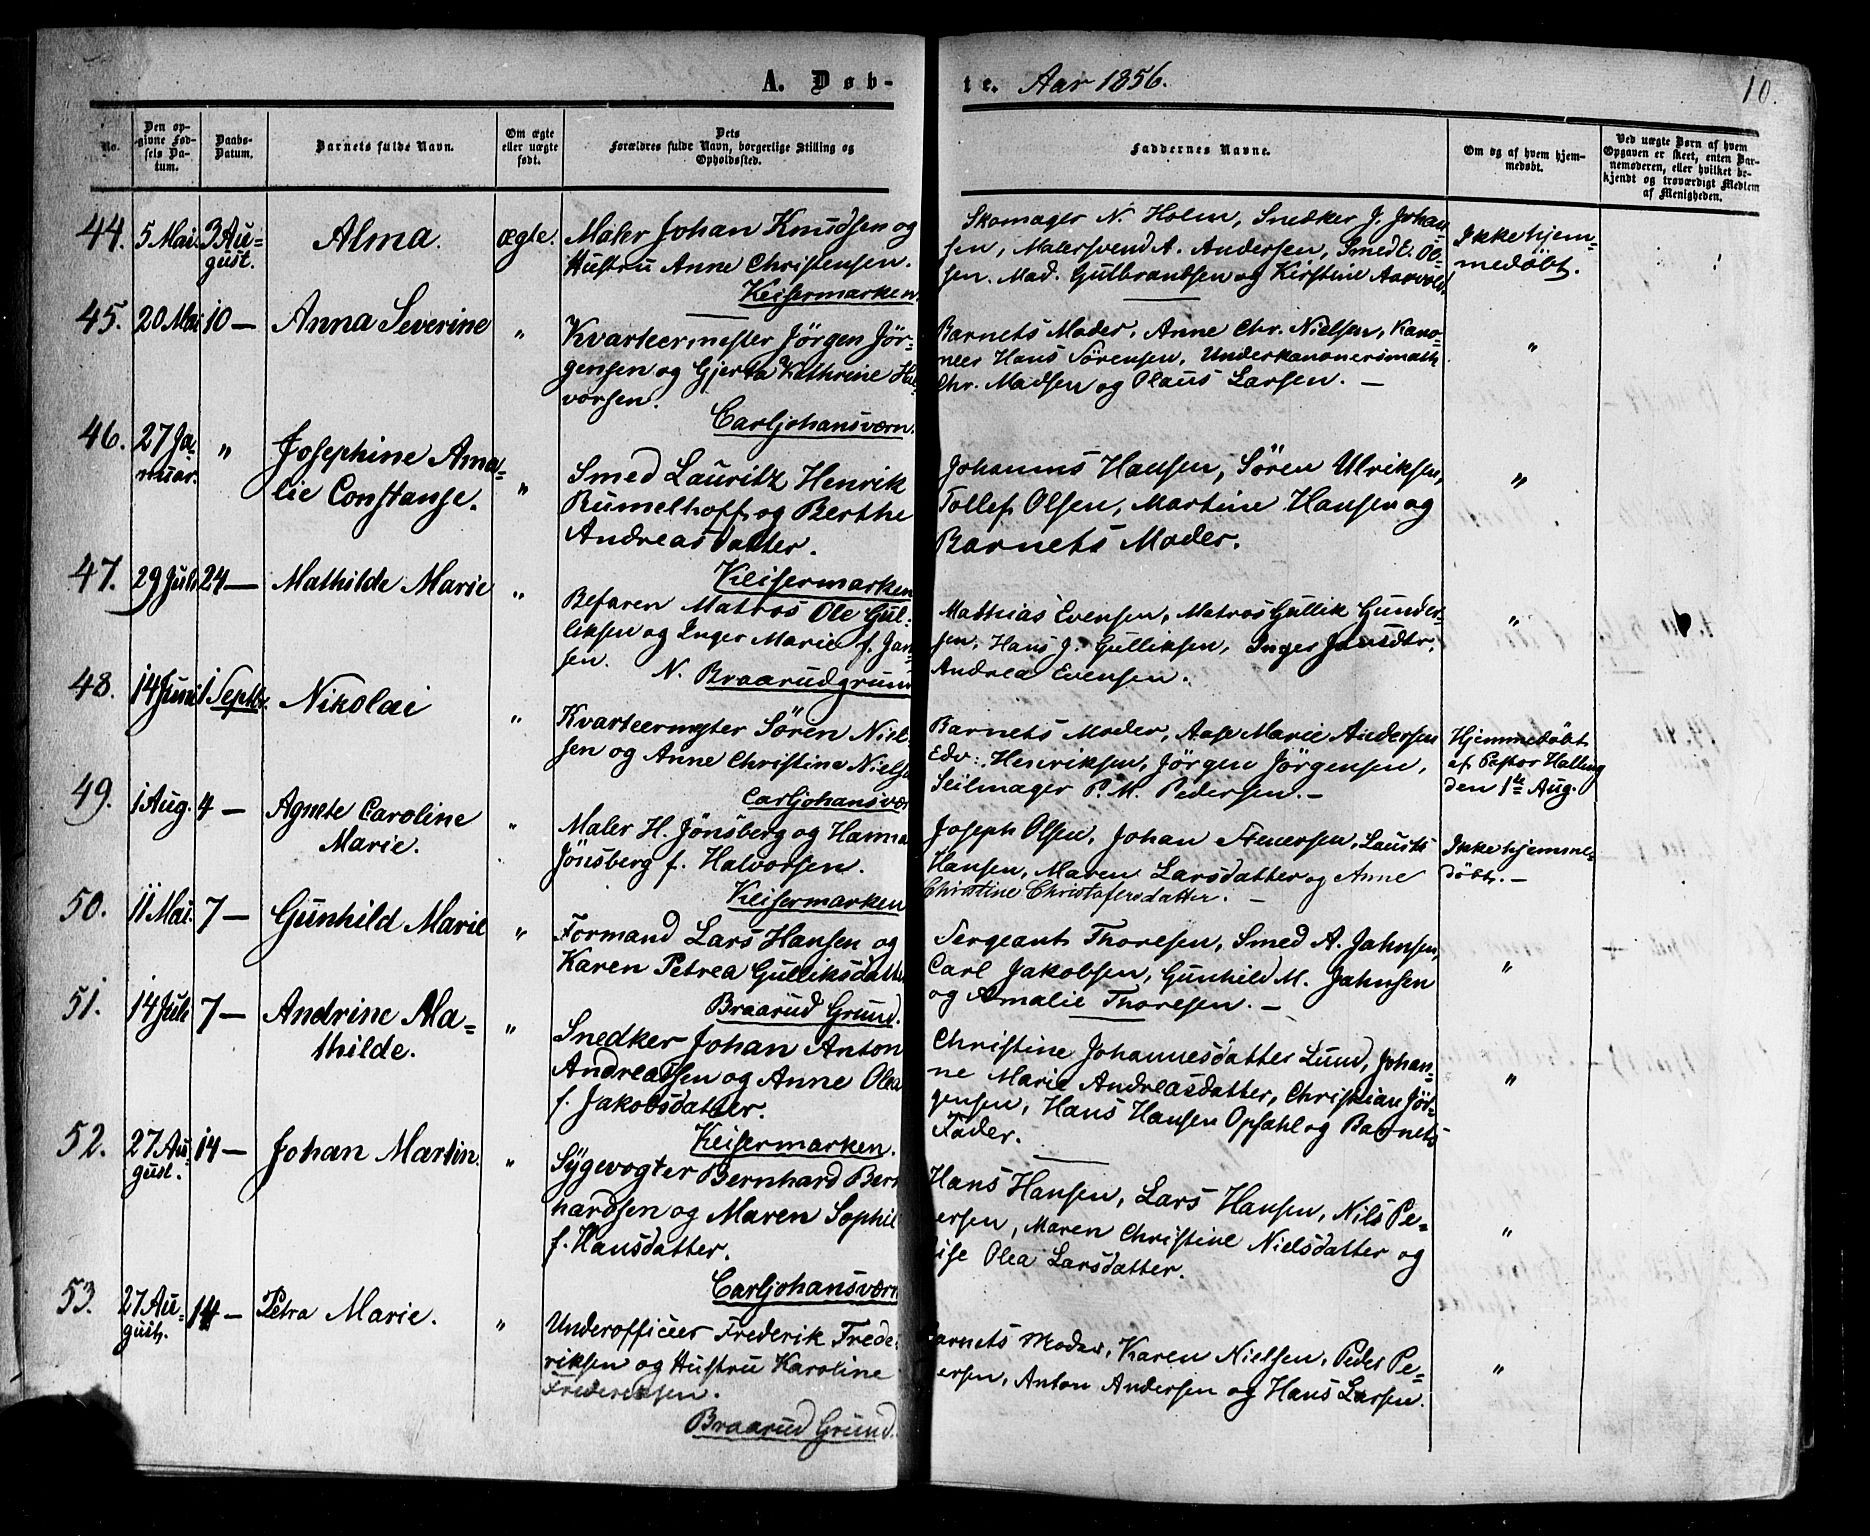 A. Døb-
te. Aar 1856.
10.
No.
Den op-
givne Fød-
sels Da-
tum.
Daabs-
Datum.
Barnets fulde Navn.
Om ægte
eller uægte
født.
Dets
Forældres fulde Navn, borgerlige Stilling og
Opholdssted.
Faddernes Navne.
Om og af hvem hjem-
medøbt.
Ved uægte Børn af hvem
Opgaven er skeet, enten Bar-
nemoderen, eller hvilket be-
kjendt og troværdigt Medlem
af Menigheden.
44.
5 Mai.
3 Au-
gust.
Alma.
ægte.
Maler Johan Knudsen og
Hustru Anne Christensen.
Keisermarken
Skomager N. Holm, Snedker J. Johan-
sen, Malersvend A. Andersen, Smed E. Ol-
sen. Mad. Gulbrantsen og Kirstine Aarvold.
Ikke hjem-
medøbt.
45.
20 Mai
10 —
Anna Severine
"
Kvarteermester Jörgen Jör-
gensen og Gjerta Kathrine Hal-
vorsen.
Carljohansværn.
Barnets Moder, Anne Chr. Nielsen, Kano-
neer Hans Sörensen, Underkanoneersmath
Chr. Madsen og Olaus Larsen. —
"
46.
27 Ja-
nuar.
"
Josephine Ama-
lie Constanse.
"
Smed Lauritz Henrik
Rumelhoff og Berthe
Andreasdatter.
Keisermarken
Johannes Hansen, Sören Ulriksen,
Tollef Olsen, Martine Hansen og
Barnets Moder.
"
47.
29 Juli
24 —
Mathilde Marie
"
Befaren Matros Ole Gul-
liksen og Inger Marie f. Jan-
sen.
N. Braarudgrund
Mathias Evensen, Matros Gullik Gunder-
sen, Hans J. Gulliksen, Inger Jansdtr.
Andrea Evensen.
"
48.
14 Juni
1 Septbr.
Nikolai
"
Kvarteermester Sören Niel-
sen og Anne Christina Nielse
Carljohansvær
Barnets Moder, Aase Marie Andersen
Edv. Henriksen, Jörgen Jörgensen,
Seilmager P. M. Pedersen. —
Hjemmedöbt
af Pastor Halling
den 1ste Aug.
49.
1 Aug.
4 —
Agnete Caroline
Marie.
"
Maler H. Jönsberg og Hanna
Jönsberg f. Halvorsen.
Keisermarken
Joseph Olsen, Johan Steversen, Laurits
Hansen, Maren Larsdatter og Anne
Christine Christofersdatter. —
Ikke hjemme-
döbt. —
50.
11 Mai.
7 —
Gunhild Marie
"
Formand Lars Hansen og
Karen Petrea Gulliksdatte
Braarud Grund.
Sergeant Thoresen, Smed A. Jahnsen,
Carl Jakobsen, Gunhild M. Jahnsen
og Amalie Thoresen. —
"
51.
14 Juli
7 —
Andrine Ma-
thilde.
"
Snedker Johan Anton
Andreassen og Anne Olea
f. Jakobsdatter.
Keisermarken.
Christine Johannesdatter Lund, Johan-
ne Marie Andreasdatter, Christian Jör-
gensen, Hans Hansen Opsahl og Barnets
Fader.
"
52.
27 Au-
gust.
14 —
Johan Martin.
"
Sygevogter Bernhard Bern
hardsen og Maren Sophie
f. Hansdatter.
Carljohansværn
Hans Hansen, Lars Hansen, Nils Pe-
ersen, Maren Christine Nielsdatter og
ise Olea Larsdatter.
"
53.
27 Au-
gust.
14 —
Petra Marie.
"
Underofficeer Frederik Frede-
riksen og Hustru Karoline
Frederiksen.
Braarud Grund.
Barnets Moder, Karen Nielsen, Peder Pe-
ersen, Anton Andersen og Hans Larsen.
"